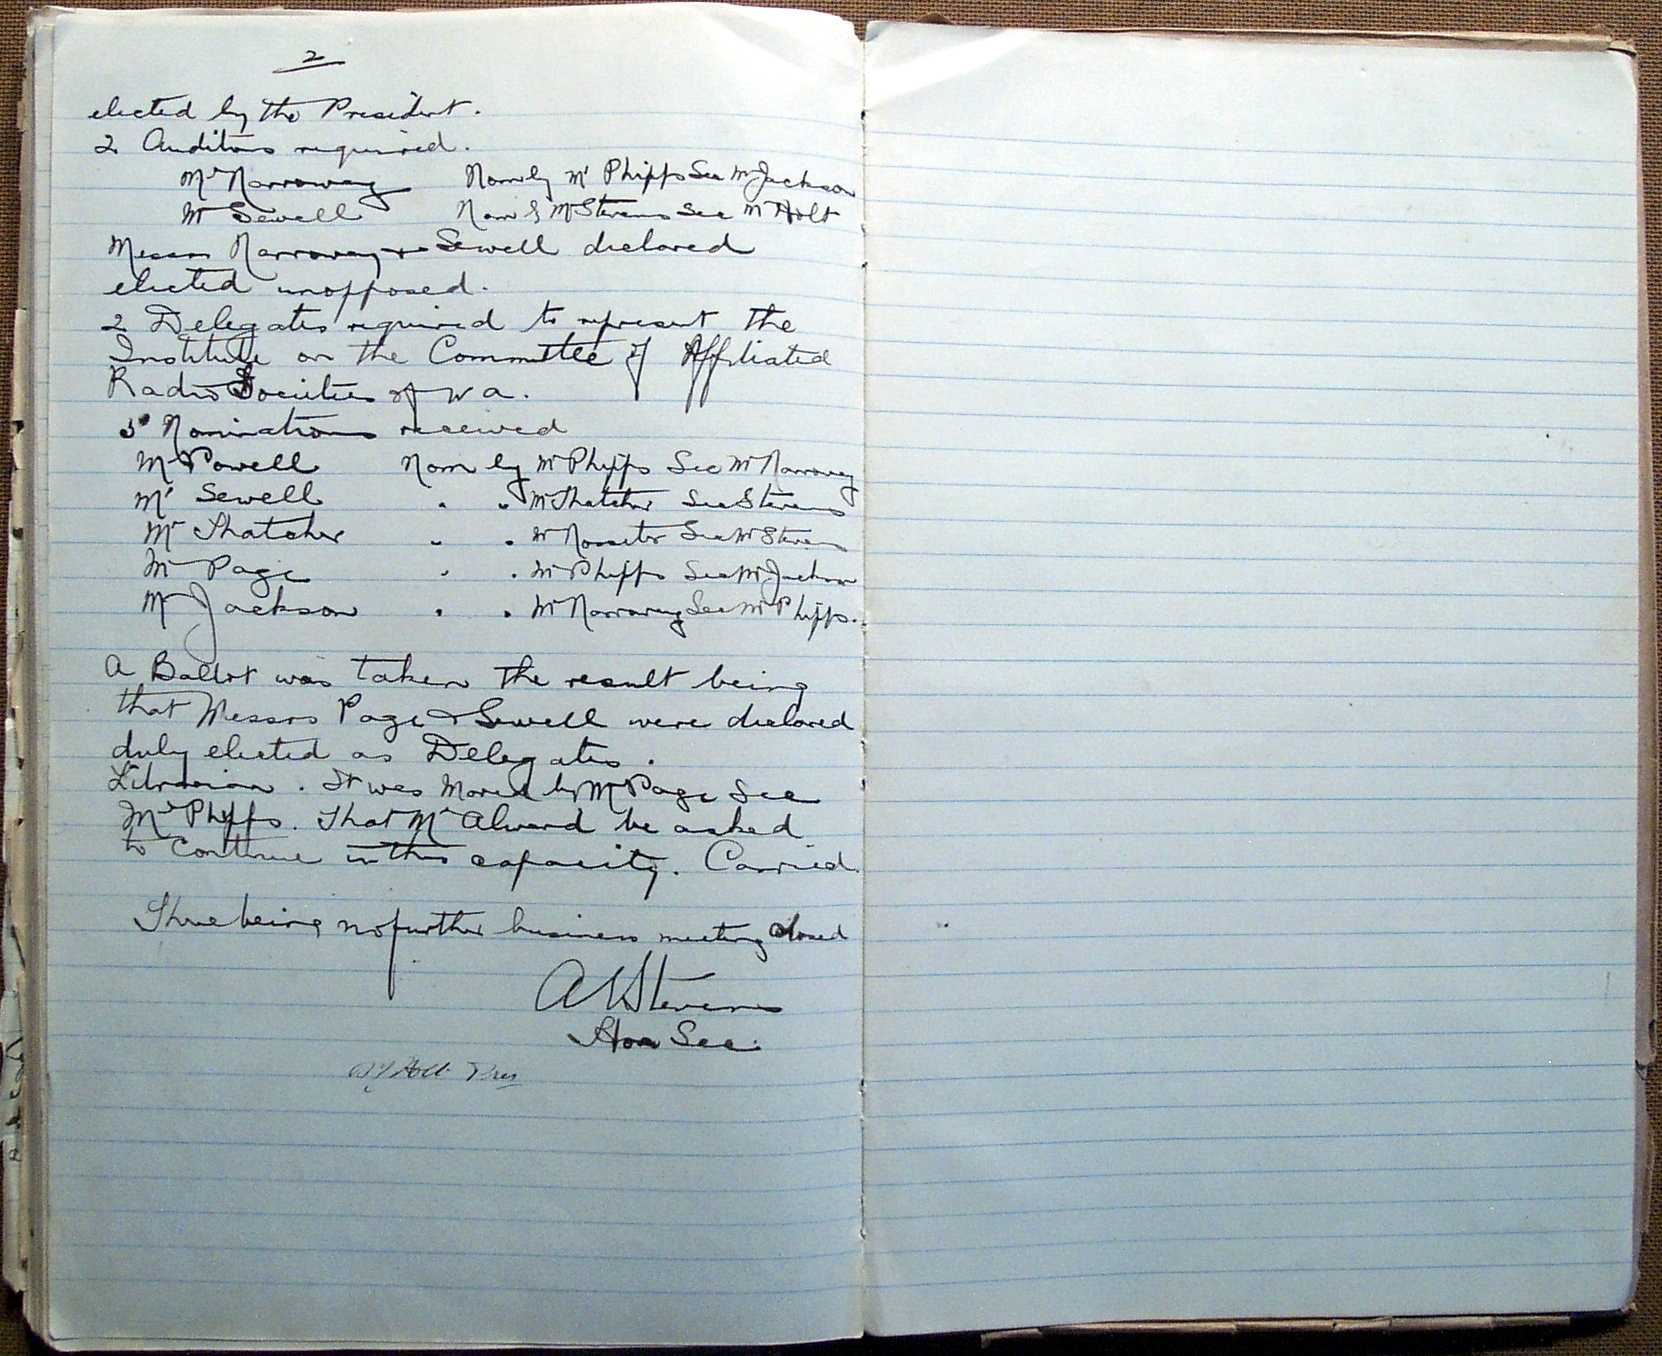 2
elected by the President.
2 Auditors required.
Mr Narroway Nom by Mr Phipps Sec Mr Jackson
Mr Sewell Nom by Mr Stevens Sec Mr Holt
Messrs Narroway & Sewell declared
elected unopposed.
2 Delegates required to represent the
Institute on the Committee of Affiliated
Radio Societies of W A.
5 Nominations received
Mr Powell Nom by Mr Phipps Sec Mr Narroway
Mr Sewell " " Mr Thatcher Sec Stevens
Mr Thatcher " " Mr Rosseter Sec Mr Stevens
Mr Page " " Mr Phipps Sec Mr Jackson
Mr Jackson " " Mr Narroway Sec Mr Phipps.
A Ballot was taken the result being
that Messrs Page & Sewell were declared
duly elected as Delegates.
Librarian. It was moved by Mr Page Sec
Mr Phipps. That Mr Alward be asked
to continue in this capacity. Carried.
There being no further business meeting closed
Stevens
Hon Sec.
Holt Pres